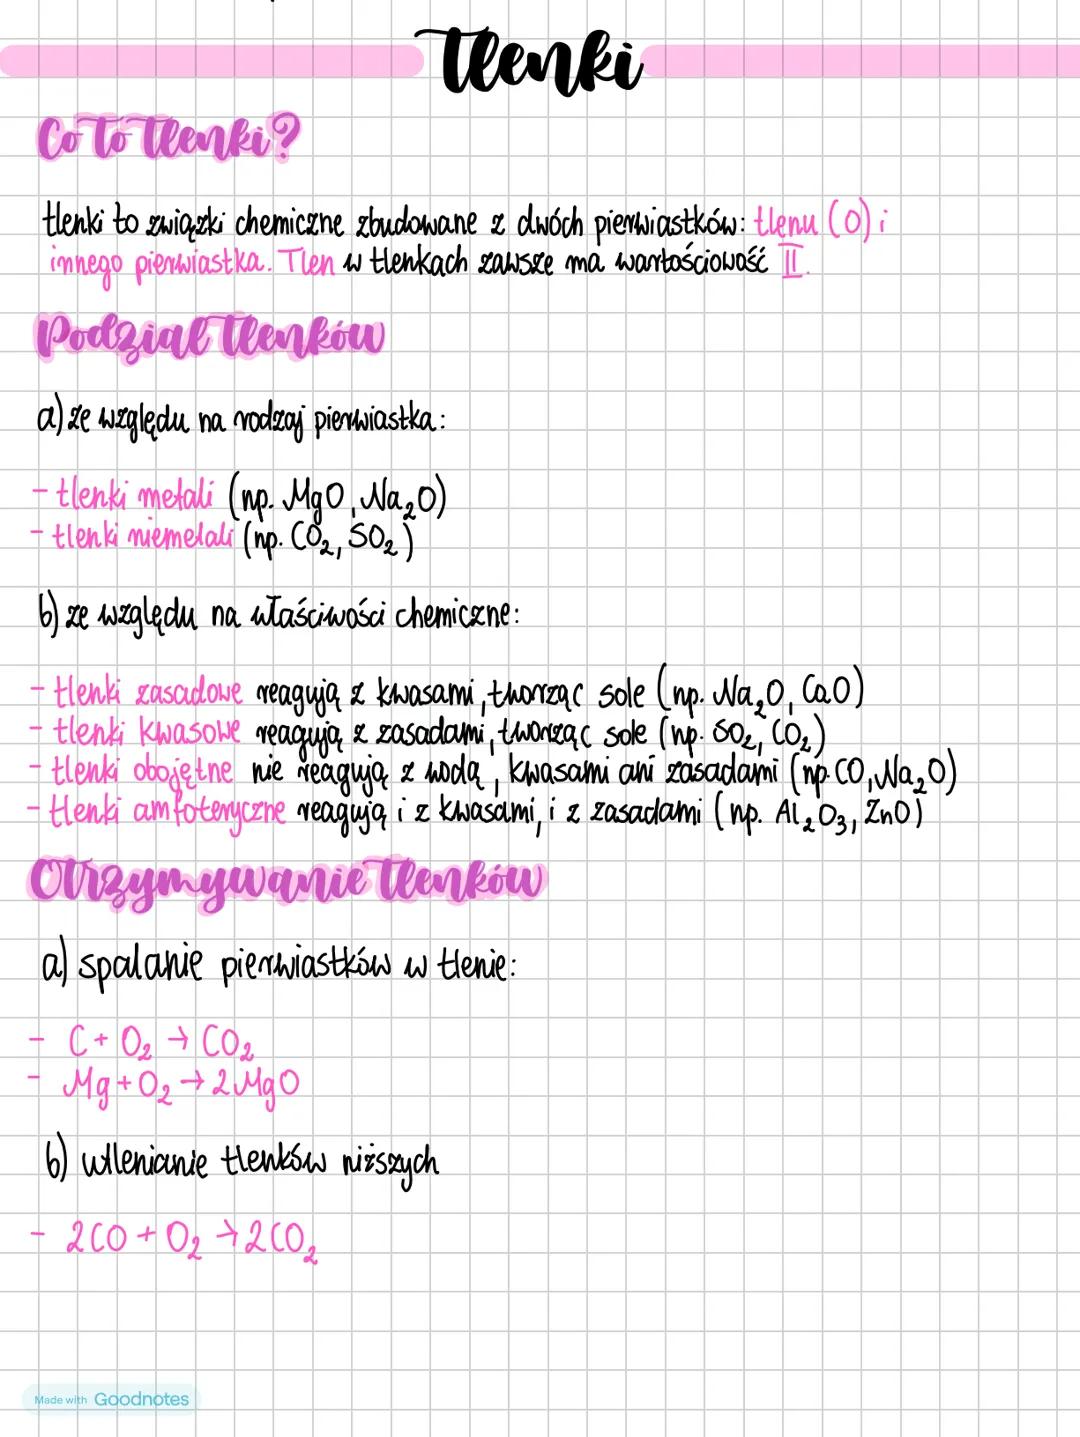 Tlenki
Co to tlenki?
tlenki to związki chemiczne zbudowane z dwóch pierwiastków: tlenu (O) i
innego pierwiastka. Tlen w tlenkach zawsze ma wartościowość II.
Podział tlenków
a) ze względu na rodzaj pierwiastka:
- tlenki metali (np. MgO, Na₂O)
- tlenki niemetali (np. CO₂, SO₂)
b) ze względu na właściwości chemiczne:
- tlenki zasadowe reagują z kwasami, tworząc sole (np. Na₂O, CaO)
- tlenki kwasowe reagują z zasadami, tworząc sole (np. SO₂, CO₂)
- tlenki obojętne nie reagują z wodą, kwasami ani zasadami (np. CO, Na₂O)
- tlenki amfoteryczne reagują i z kwasami, i z zasadami (np. Al₂O₃, ZnO)
Otrzymywanie tlenków
a) spalanie pierwiastków w tlenie:
- C + O₂ → CO₂
- Mg + O₂ → 2MgO
b) utlenianie tlenków niższych
- 2CO + O₂ → 2CO₂
Made with Goodnotes